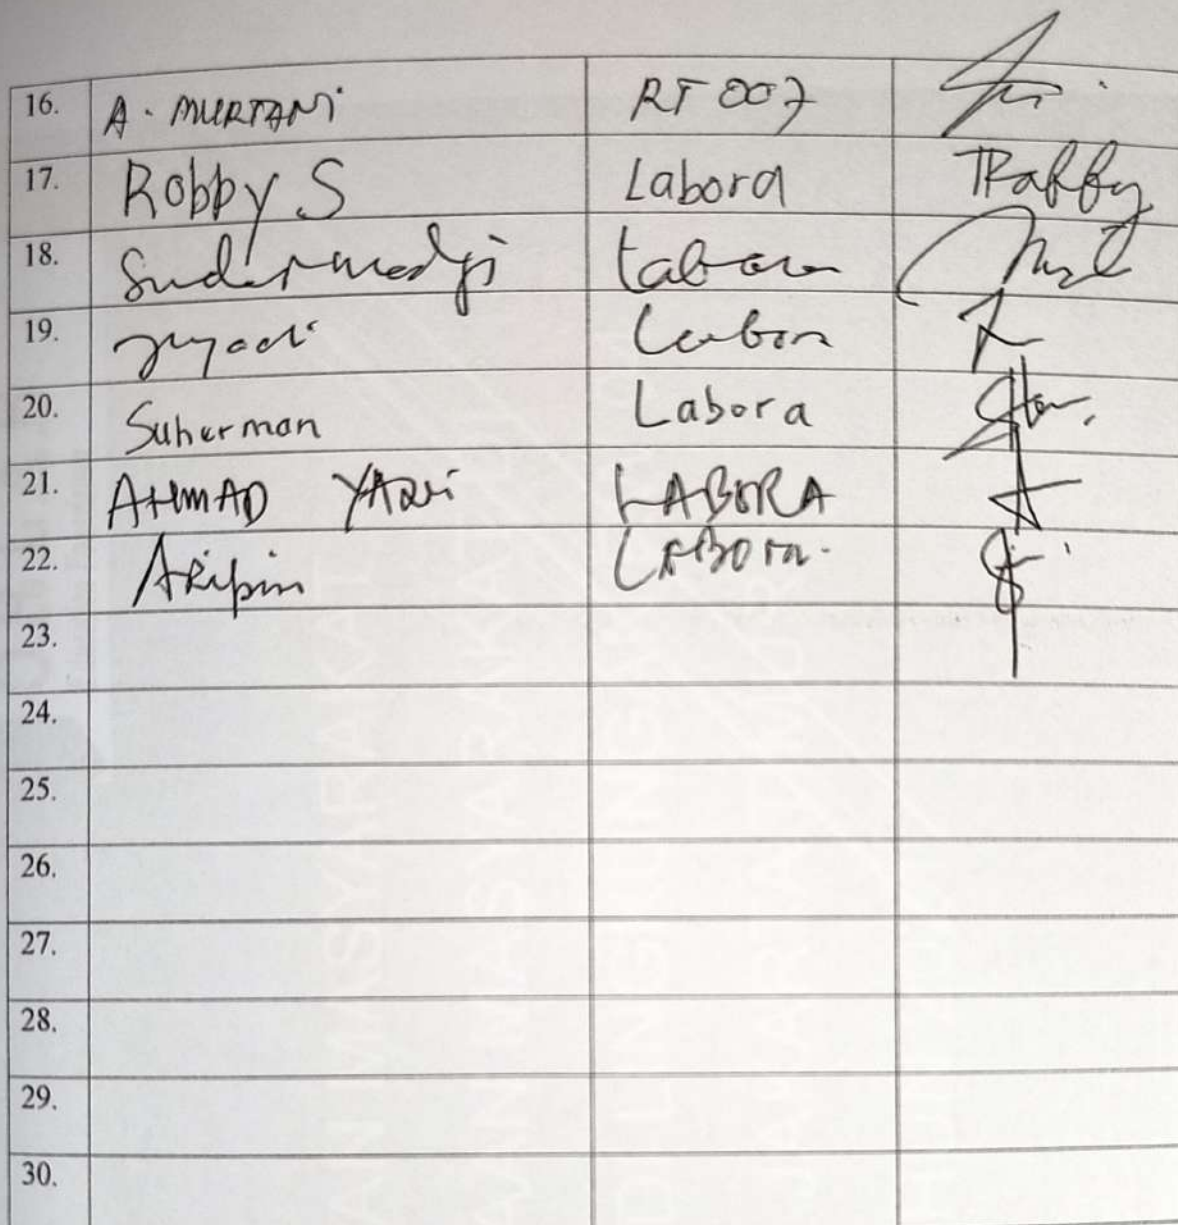 16. A. MURTANI RT 007
17. Robby S Labora
18. Sudarmadji Labora
19. Labora
20. Suherman Labora
21. AHMAD YAZRi LABORA
22. Aripin LABORA.
23.
24.
25.
26.
27.
28.
29.
30.